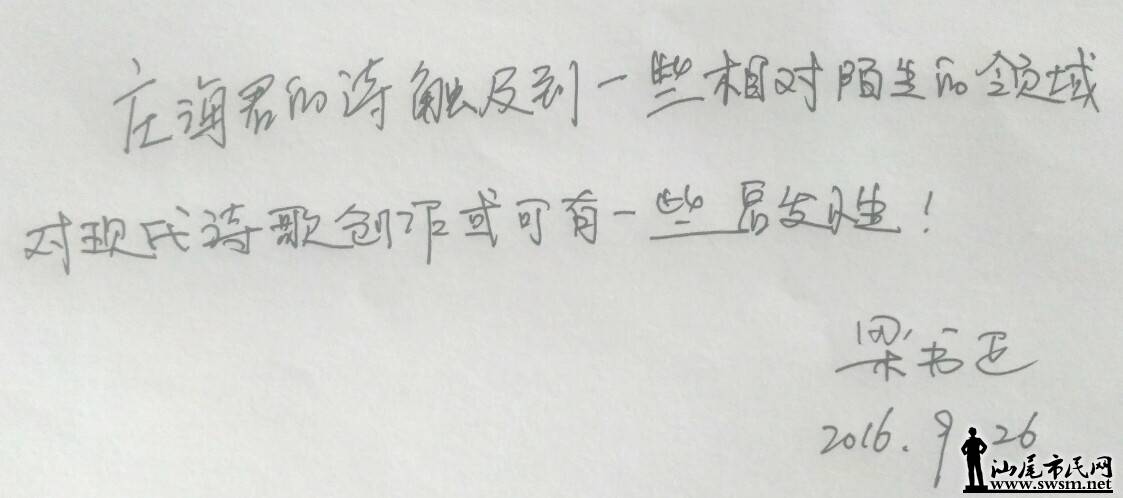 庄海君的诗触及到一些相对陌生的领域
对现代诗歌创作或可有一些启发性！
梁书正
2016.9.26
汕尾市民网
www.swsm.net